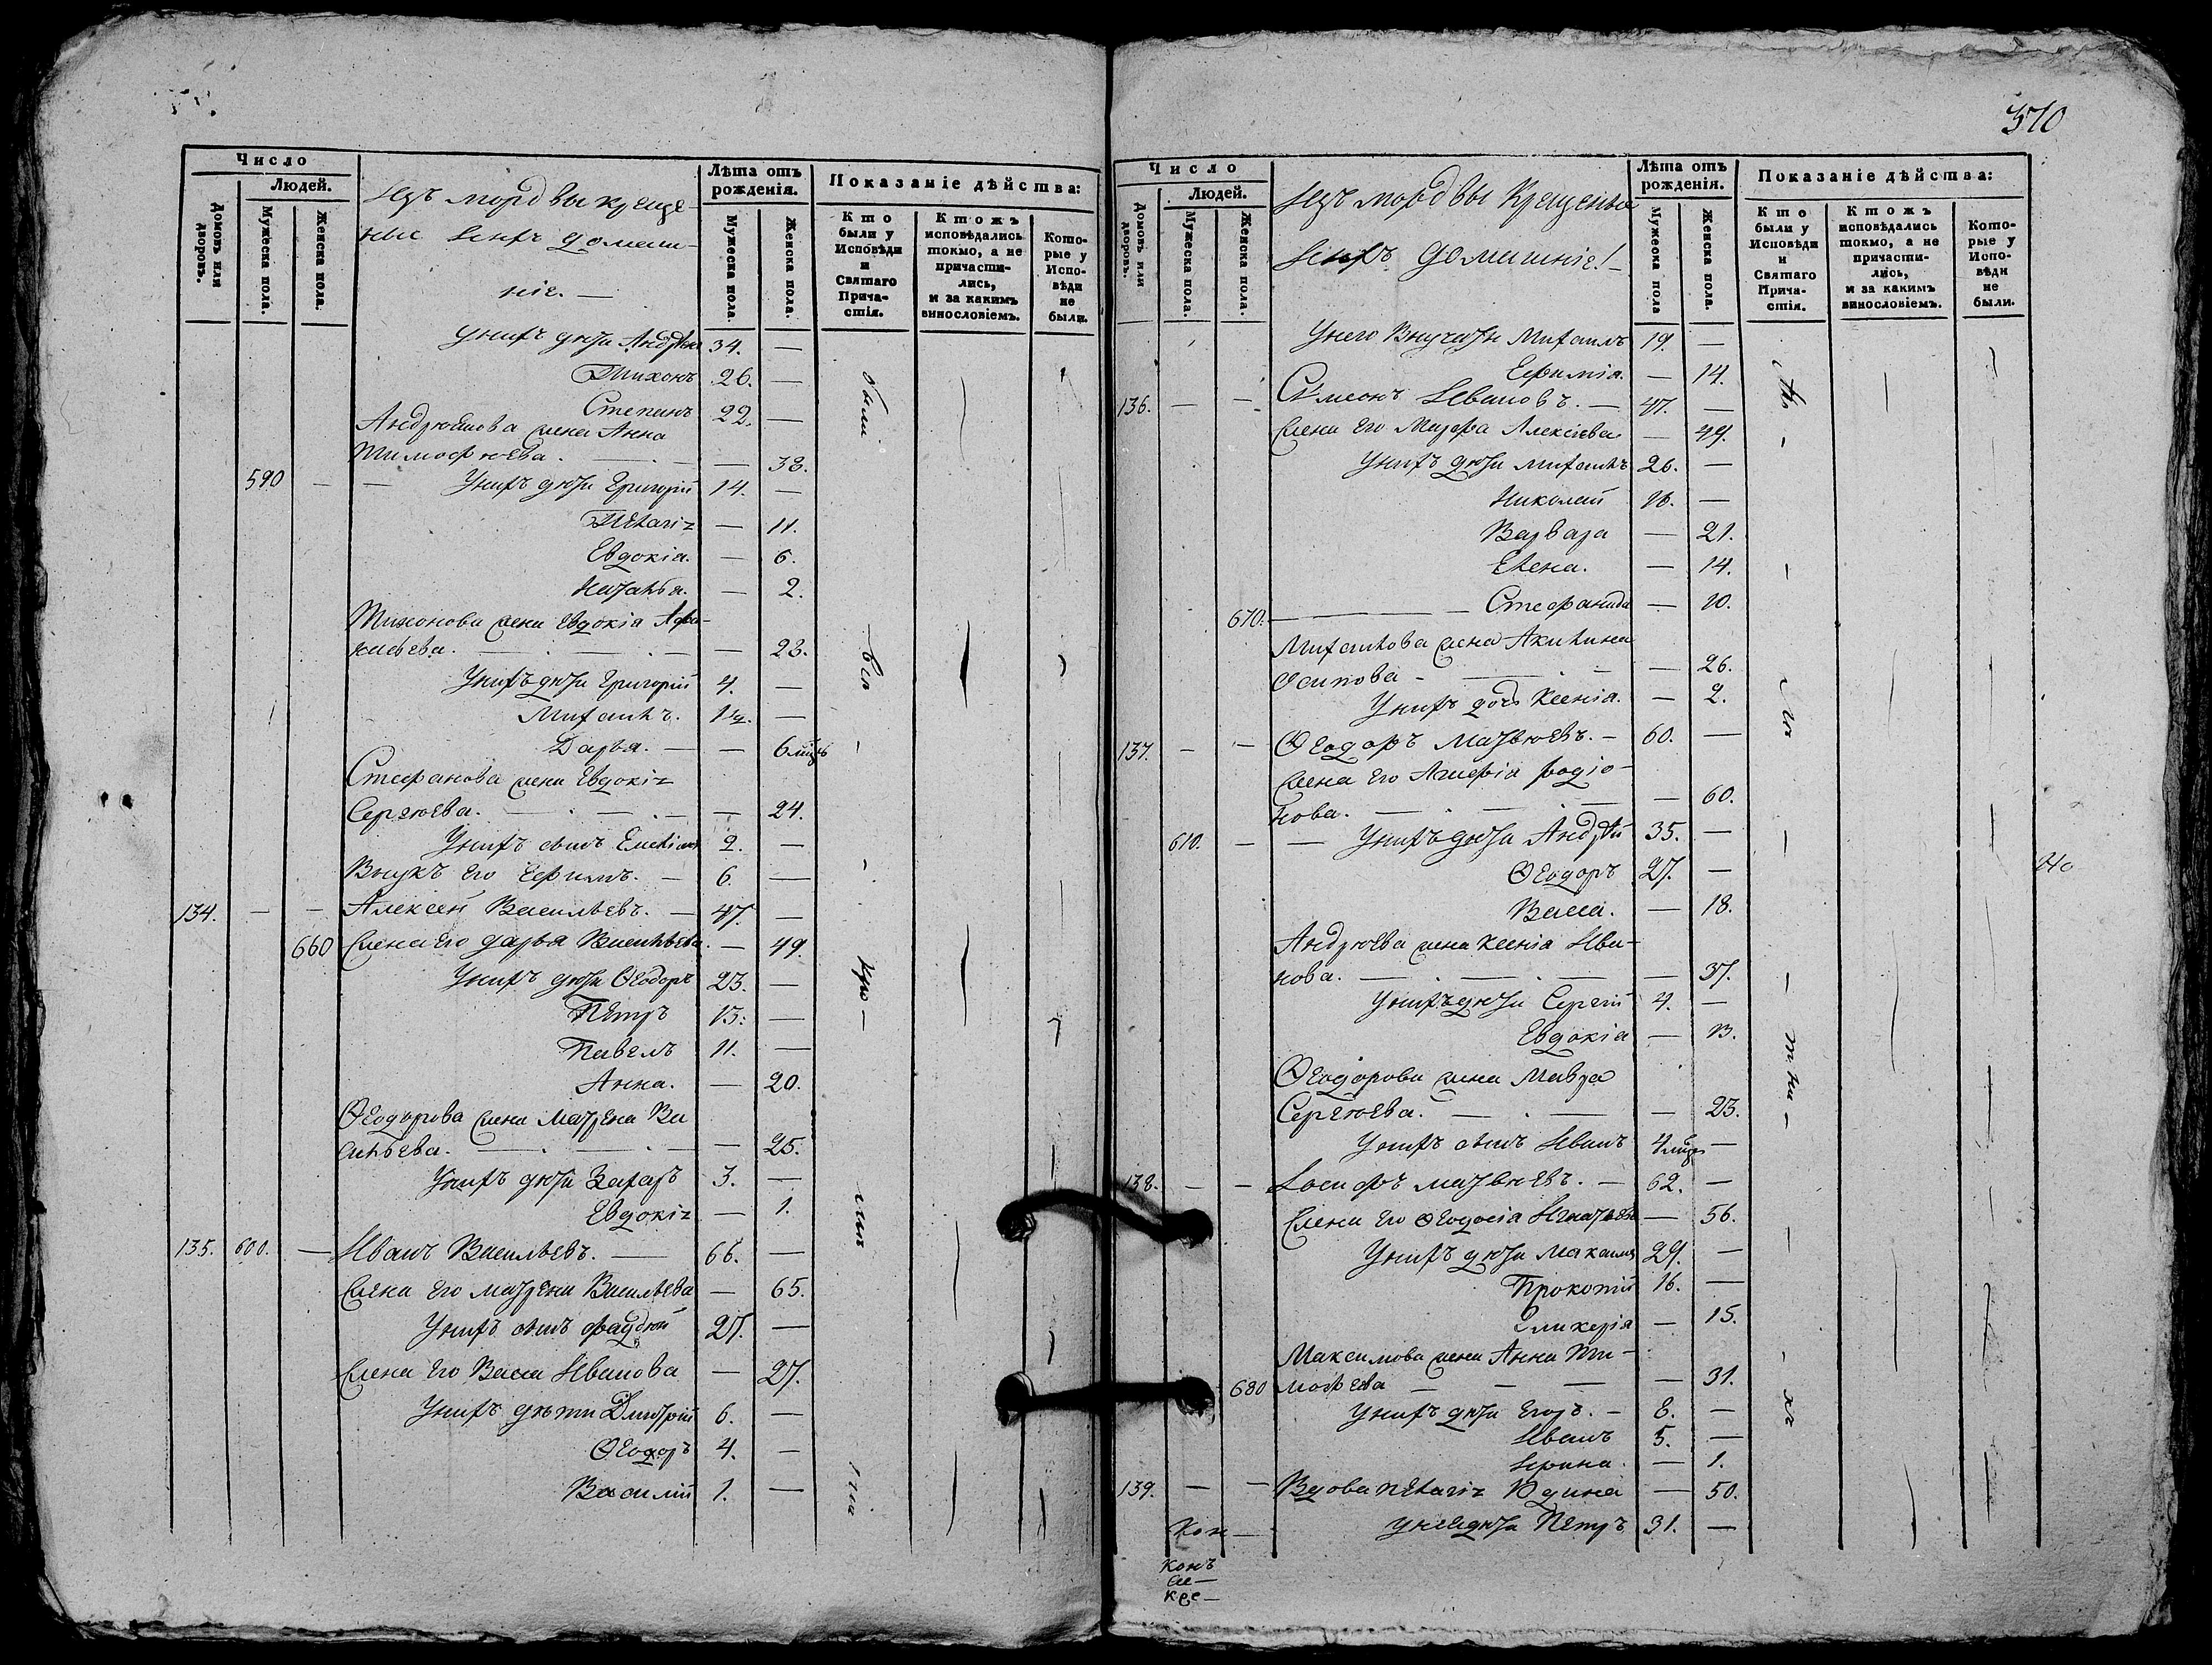 Число
Людей.
Домовъ или дворовъ.
Мужеска пола.
Женска пола.
Изъ мордвы креще-
ные ихъ домаш-
ніе. —
Лѣта отъ рожденія.
Мужеска пола.
Женска пола.
Показаніе дѣйства:
Кто были у Исповѣди и Святаго Прича-стія.
Ктожъ исповѣдались токмо, а не причасти-лись, и за какимъ винословіемъ.
Кото-рые у Испо-вѣди не были.
У нихъ дѣти Андрей 34. —
Тихонъ 26. —
Степанъ 22. —
Андрюшова жена Анна
Тимофѣева. — — 38.
590 — — У нихъ дѣти Григорій 14. —
Пелагія — 11.
Евдокія. — 6.
Наталья. — 2.
Тихонова жена Евдокія Афа-
насьева. — — 23.
У нихъ дѣти Григорій 4. —
Михаилъ. —
Дарья. — — 6 мцвъ
Стефанова жена Евдокія
Сергѣева. — — 24.
У нихъ сынъ 2. —
Внукъ его Ефимъ. — 6. —
134. — — Алексей Васильевъ. — 47. —
660 Жена его Дарья Васильева. — 49.
У нихъ дѣти Ѳеодоръ 23. —
Петръ 13. —
Павелъ 11. —
Анна. — 20.
Ѳеодорова жена Матрена Ва
сильева. — — 25.
У нихъ дѣти Захаръ 3. —
Евдокія — 1.
135. 600. — Иванъ Васильевъ. — 66. —
Жена его Матрена Васильева — 65.
У нихъ сынъ Фаддей 27. —
Жена его Васса Иванова — 27.
У нихъ дѣти Дмитрій 6. —
Ѳеодоръ 4. —
Василій 1. —
были
всѣ
370
Число
Людей.
Домовъ или дворовъ.
Мужеска пола.
Женска пола.
Изъ мордвы крещеные
ихъ домашніе! —
Лѣта отъ рожденія.
Мужеска пола
Женска пола.
Показаніе дѣйства:
Кто были у Исповѣди и Святаго Прича-стія.
Ктожъ исповѣдались токмо, а не причасти-лись, и за какимъ винословіемъ.
Кото-рые у Испо-вѣди не были.
У него внучаты Михаилъ 19. —
Ефимія. — 14.
136. — — Симеонъ Ивановъ. — 47. —
Жена его Марфа Алексѣева — 49.
У нихъ дѣти Михаилъ 26. —
Николай 16. —
Варвара — 21.
Елена. — 14.
670. — — Стефанида — 10.
Михаилова жена Акилина
Осипова — — 26.
У нихъ дочь Ксенія. — 2.
137. — — Ѳеодоръ Матвѣевъ. — 60. —
Жена его Агафія Родіо-
нова. — — 60.
610. — — У нихъ дѣти Андрей 35. —
Ѳеодоръ 27. —
Васса. — 18.
Андрюева жена Ксенія Ива-
нова. — — 37.
У нихъ дѣти Сергей 4. —
Евдокія —
Ѳеодорова жена Мавра
Сергѣева. — — 23.
У нихъ сынъ Иванъ 4 мцъ —
138. — — Іосифъ Матвѣевъ. — 62. —
Жена его Ѳеодосія Игнатьева — 56.
У нихъ дѣти Максимъ 29. —
Прокопій 16. —
Гликерія — 15.
Максимова жена Анна Ти-
680 мофеева — — 31.
У нихъ дѣти Егоръ. — 8. —
Иванъ 5. —
Ирина. — 1.
139. — — Вдова Пелагія Юдина — 50.
У ней дѣти Петръ 31. —
Кон —
конъ
кре —